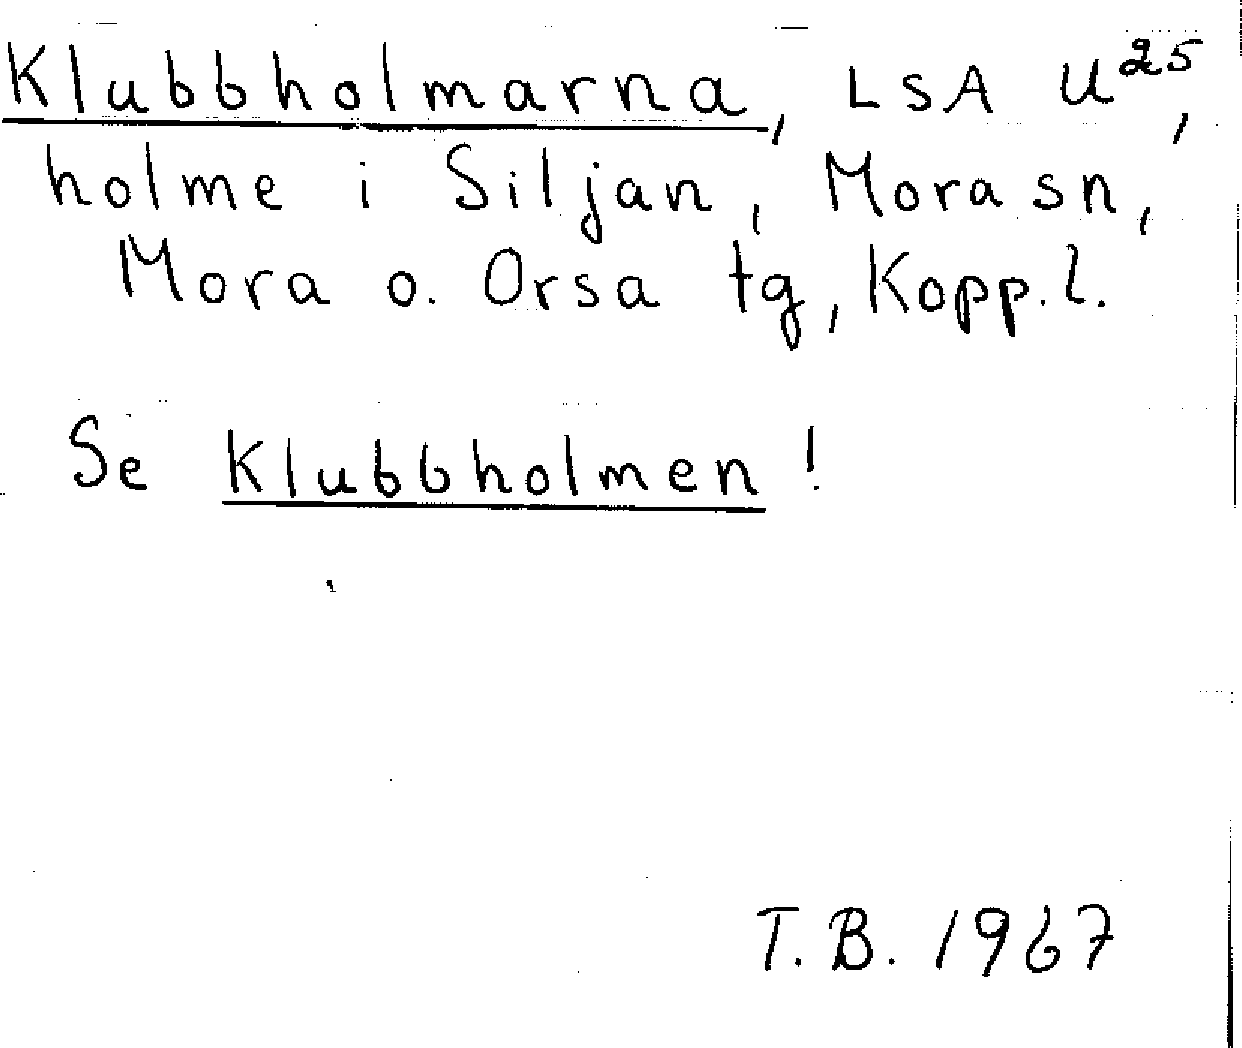 Klubbholmarna, LSA U²⁵,
holme i Siljan, Mora sn,
Mora o. Orsa tg, Kopp. l.
Se Klubbholmen!
T.B. 1967